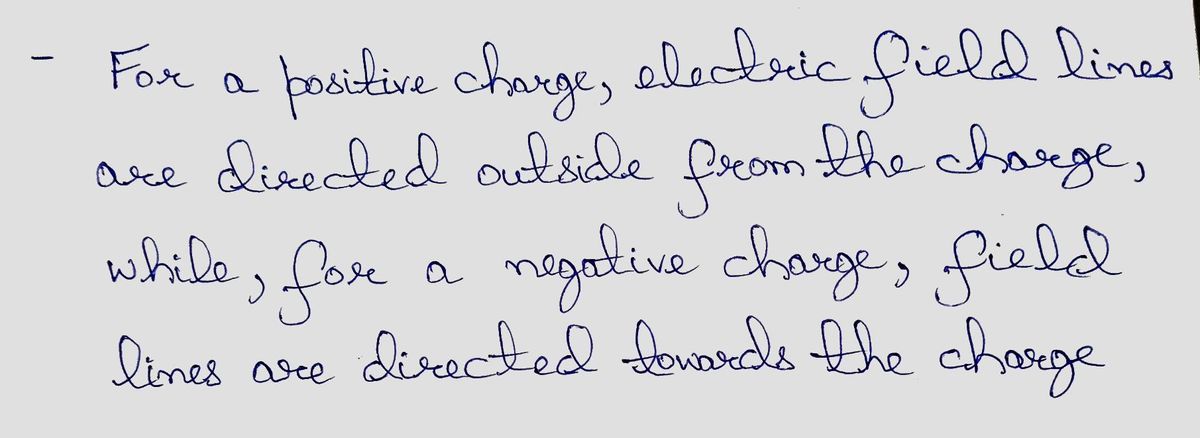 - For a positive charge, electric field lines
are directed outside from the charge,
while, for a negative charge, field
lines are directed towards the charge